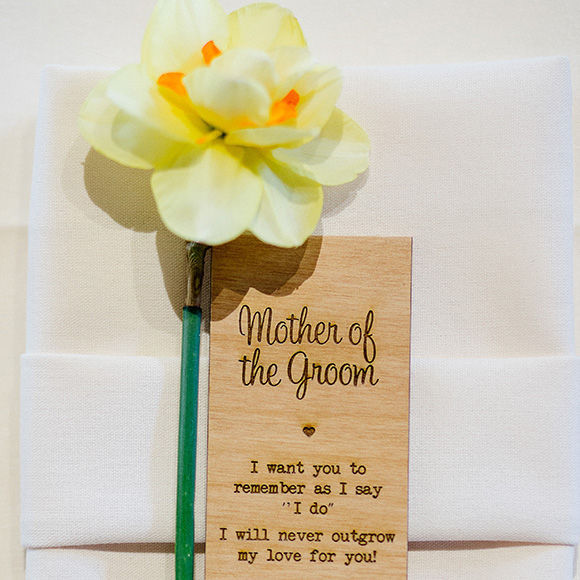 Mother of
the Groom
I want you to
remember as I say
"I do"
I will never outgrow
my love for you!